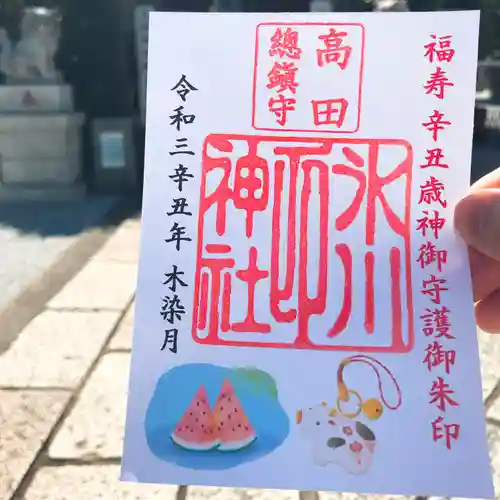 福寿辛丑歳神御守護御朱印
高田
總鎮守
氷川
神社
令和三辛丑年 木染月